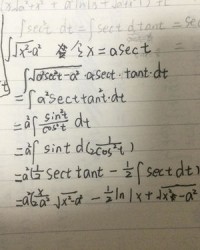 ∫sec³t dt = ∫sect dtant = sec
∫√x²-a² 令 x = asect
∫√a²sec²t-a² · asect · tant · dt
= ∫a²sect tan²t · dt
= a²∫ sin²t/cos³t dt
= a²∫ sint d(1/2cos²t)
= a²(1/2 sect tant - 1/2∫sect dt)
= a²(x/2a² √x²-a² - 1/2 ln|x + √x²-a²